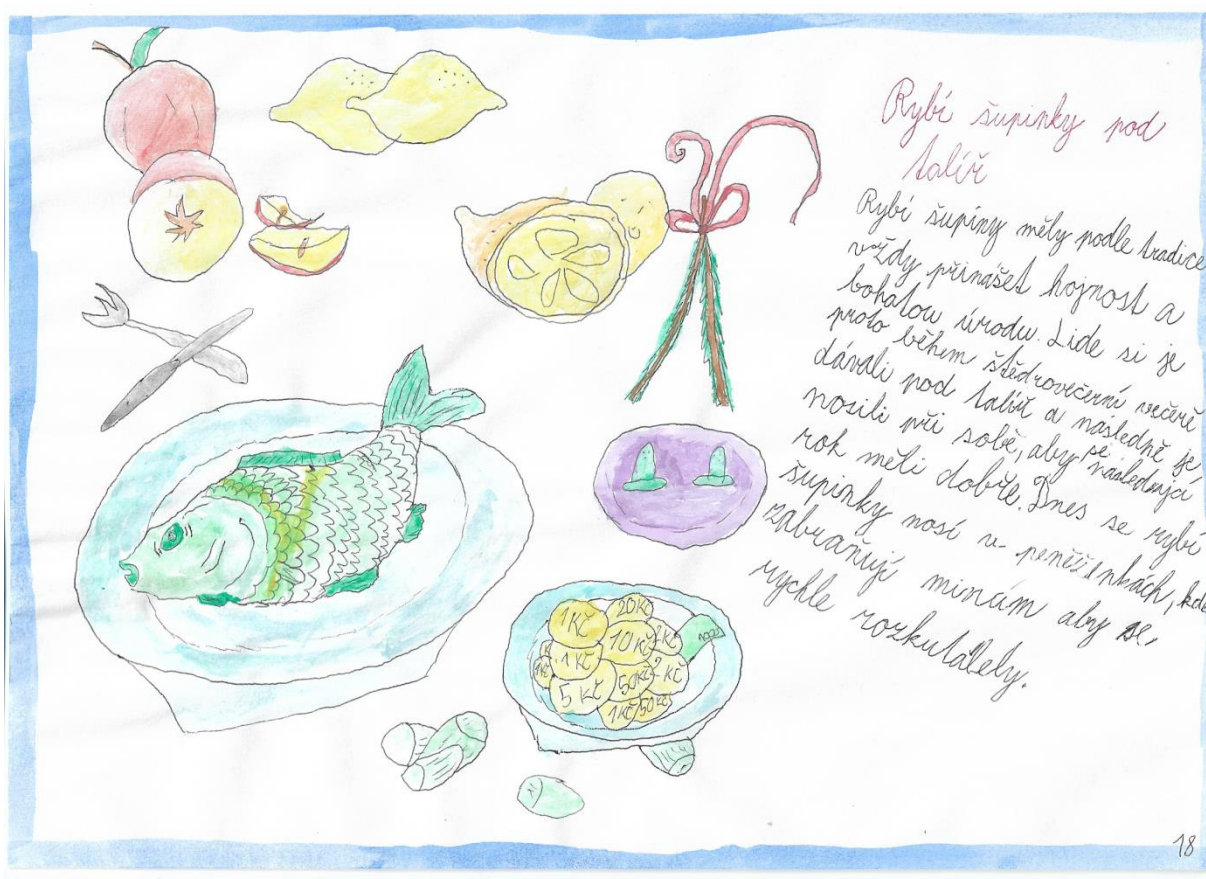 Rybí šupinky pod
talíř
Rybí šupiny měly podle tradice
vždy přinášet hojnost a
bohatou úrodu. Lide si je
proto během štědrovečerní večeře
dávali pod talíř a následně je
nosili při sobě, aby se následující
rok měli dobře. Dnes se rybí
šupinky nosí v peněženkách, kde
zabraňují minám aby se
rychle rozkutálely.
1Kč 20Kč
10Kč 2Kč
1Kč 1Kč 50Kč 2 Kč
5 Kč 1Kč 50Kč
18